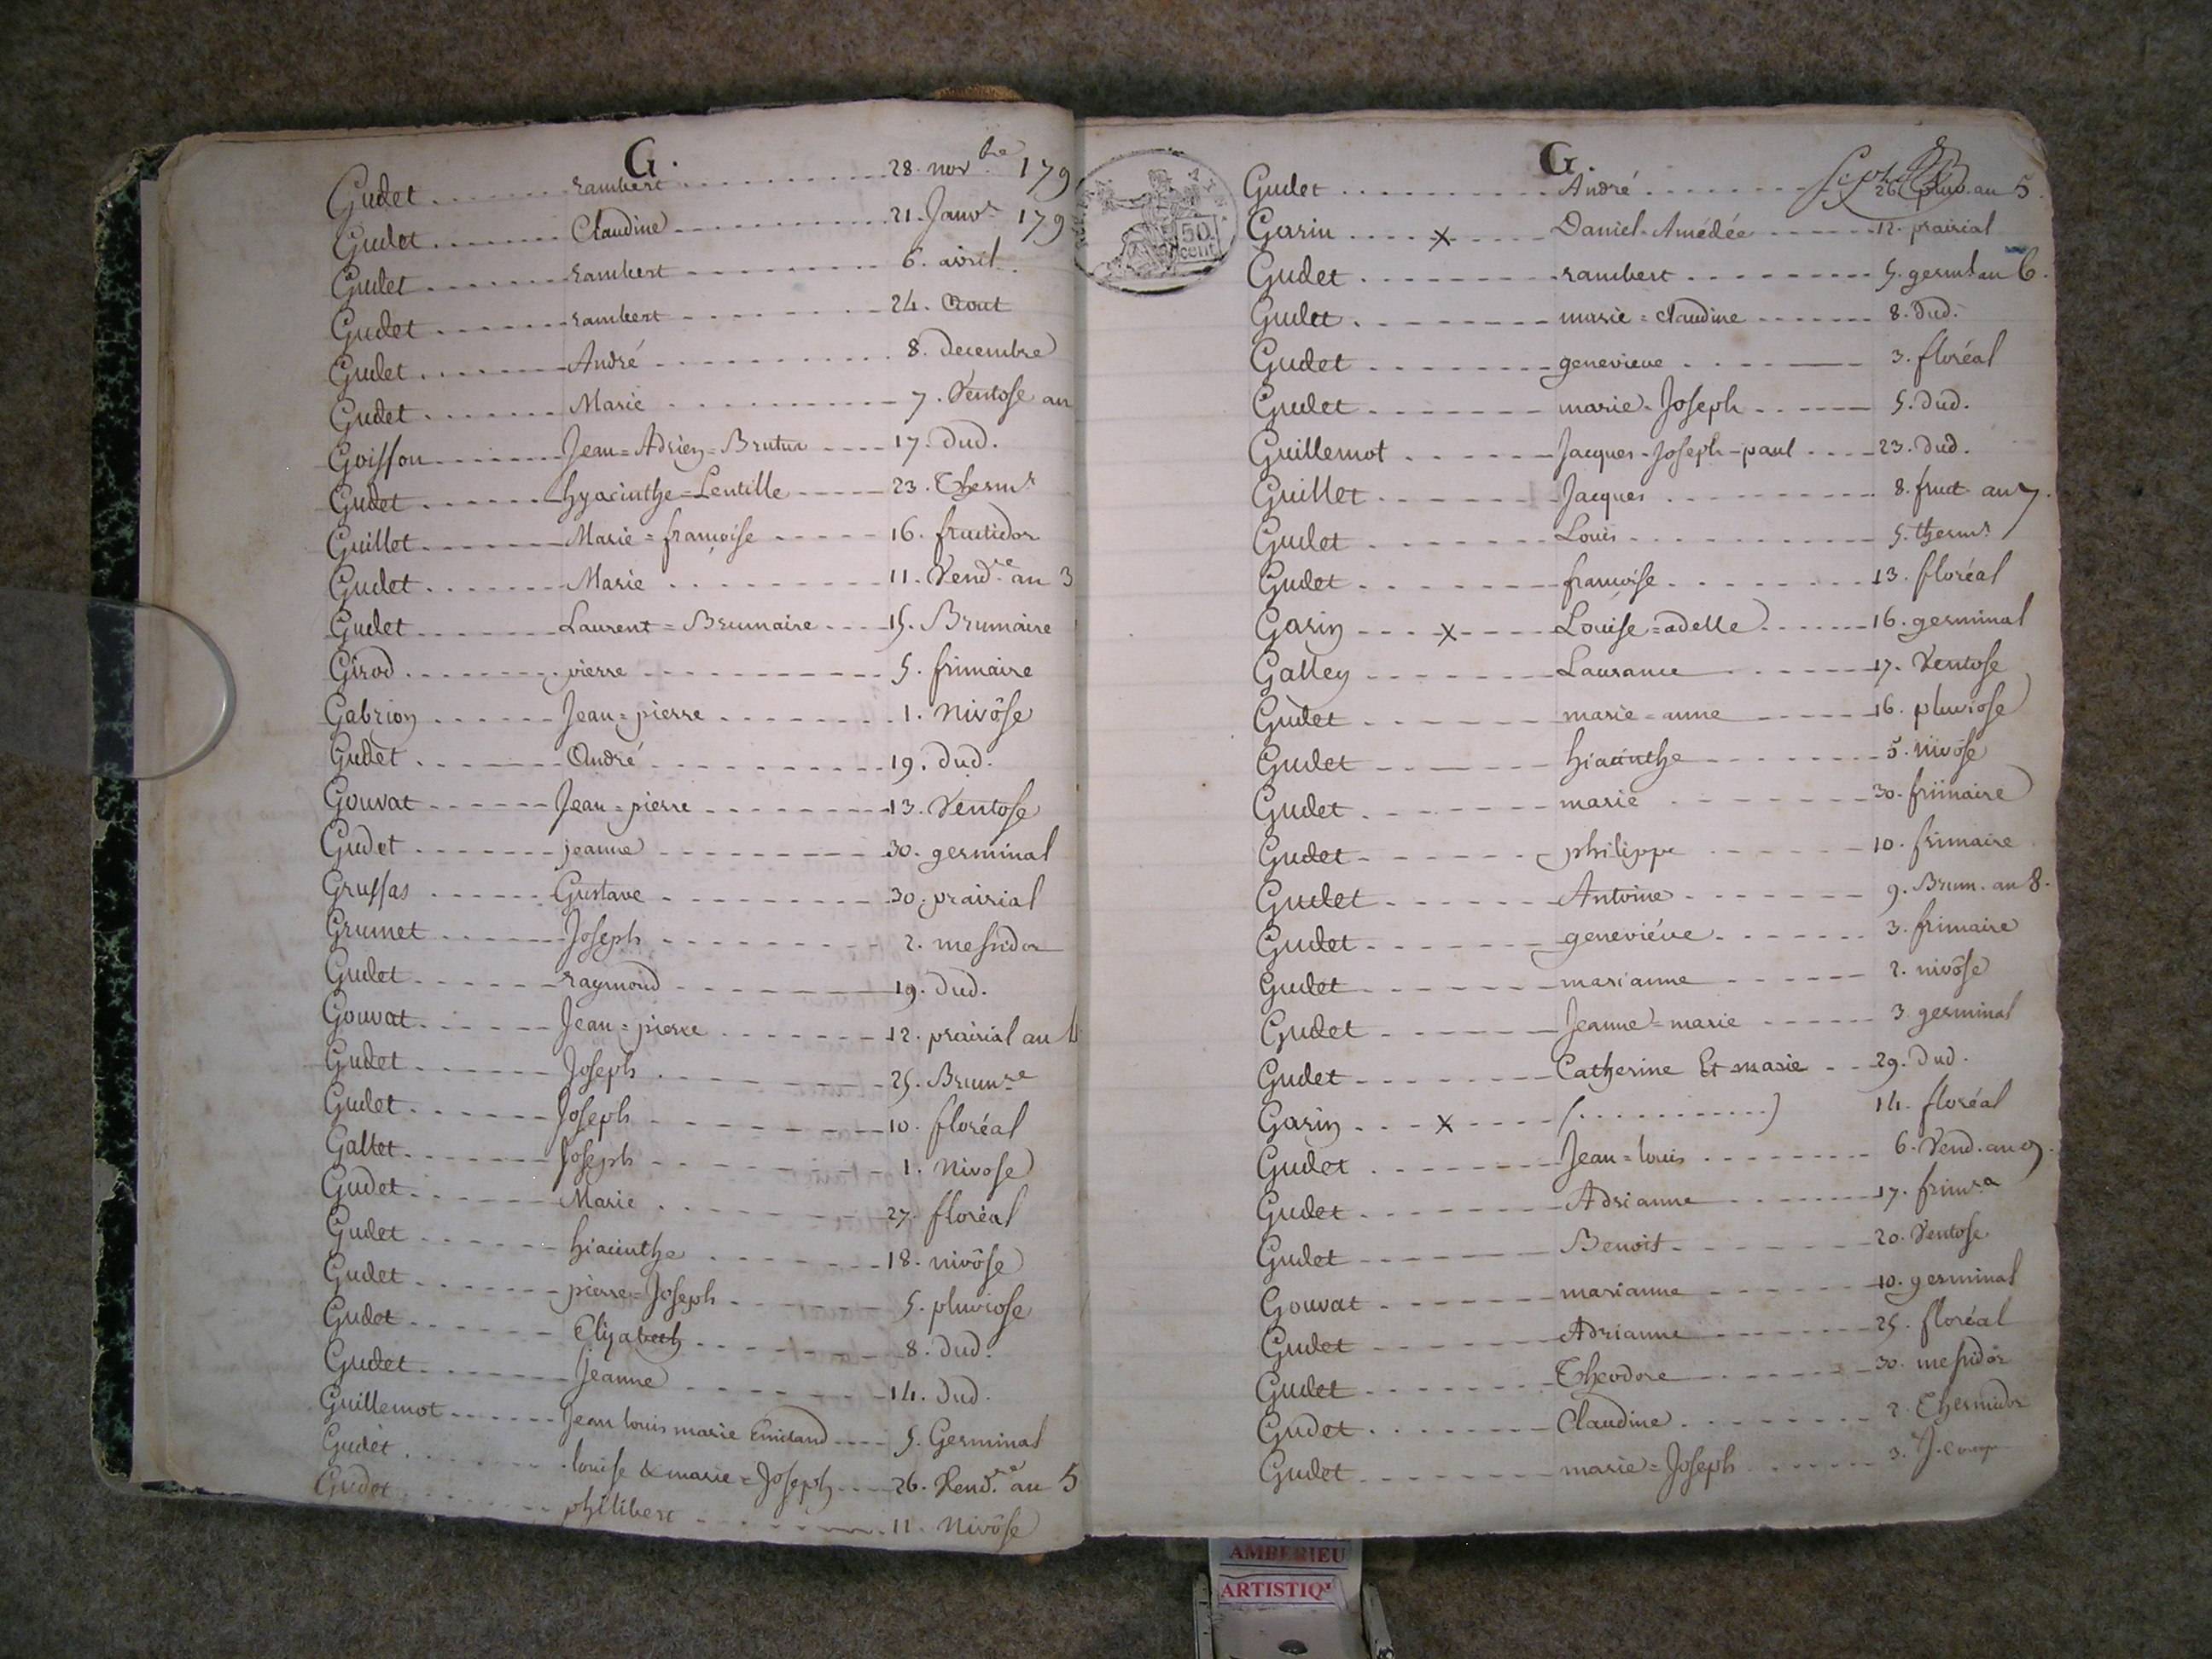 G.
Gudet rambert 28. nov.bre 179
Gudet Claudine 21. Janv.r 179
Gudet rambert 6. avril.
Gudet rambert 24. Aout
Gudet André 8. Decembre
Gudet Marie 7. Ventose an
Goisson Jean=Adrien=Brutus 17. dud.
Gudet hyacinthe=Lentille 23. Therm.r
Guillot Marie=françoise 16. fructidor
Gudet Marie 11. Vend.re an 3
Gudet Laurent=Brumaire 15. Brumaire
Girod pierre 5. frimaire
Gabrion Jean=pierre 1. Nivôse
Gudet André 19. dud.
Gouvat Jean=pierre 13. Ventose
Gudet jeanne 30. germinal
Grussas Gustave 30. prairial
Grumet Joseph 2. messidor
Gudet raymond 19. dud.
Gouvat Jean=pierre 12. prairial an 4
Gudet Joseph 25. Brum.re
Gudet Joseph 10. floréal
Gallet Joseph 1. Nivose
Gudet Marie 27. floréal
Gudet hiacinthe 18. nivôse
Gudet pierre=Joseph 5. pluviose
Gudet Elizabeth 8. dud.
Gudet Jeanne 14. dud.
Guillemot Jean louis marie 5. Germinal
Gudet louise & marie=Joseph 26. Vend.re an 5
Gudet philibert 11. Nivôse
G.
50 cent
Gudet André 26. pluv. an 5.
Garin x Daniel=Amédée 12. prairial
Gudet rambert 5. germl an 6.
Gudet marie=claudine 8. dud.
Gudet genevieve 3. floréal
Gudet marie=Joseph 5. dud.
Guillemot Jacques=Joseph=paul 23. dud.
Guillet Jacques 8. fruct. an 7.
Gudet Louis 5. therm.r
Gudet françoise 13. floréal
Garin x Louise=adelle 16. germinal
Galley Laurance 17. Ventose
Gudet marie=anne 16. pluviose
Gudet hiacinthe 5. nivôse
Gudet marie 30. frimaire
Gudet philippe 10. frimaire
Gudet Antoine 9. Brum. an 8.
Gudet geneviéve 3. frimaire
Gudet marianne 2. nivôse
Gudet Jeanne=marie 3 germinal
Gudet Catherine Et marie 29. dud.
Garin x (...........) 14. floréal
Gudet Jean=louis 6. Vend. an 9.
Gudet Adrianne 17. frim.re
Gudet Benoit 20. Ventose
Gouvat marianne 10. germinal
Gudet Adrianne 25. floréal
Gudet Theodore 30. messidor
Gudet Claudine 2. Thermidor
Gudet marie=Joseph 3. J. comp
AMBERIEU
ARTISTIQ